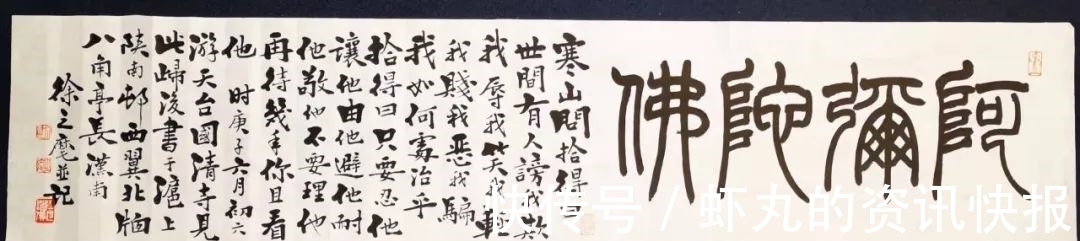 阿彌陀佛
寒山問拾得
世間有人謗我欺
我辱我笑我輕
我賤我惡我騙
我如何處治乎
拾得曰只要忍他
讓他由他避他耐
他敬他不要理他
再待幾年你且看
他 时庚子六月初六
游天台國清寺見
此歸後書于滬上
陝南邨西翼北牖
八南亭長漢南
徐之並記
快传号 / 虾丸的资讯快报